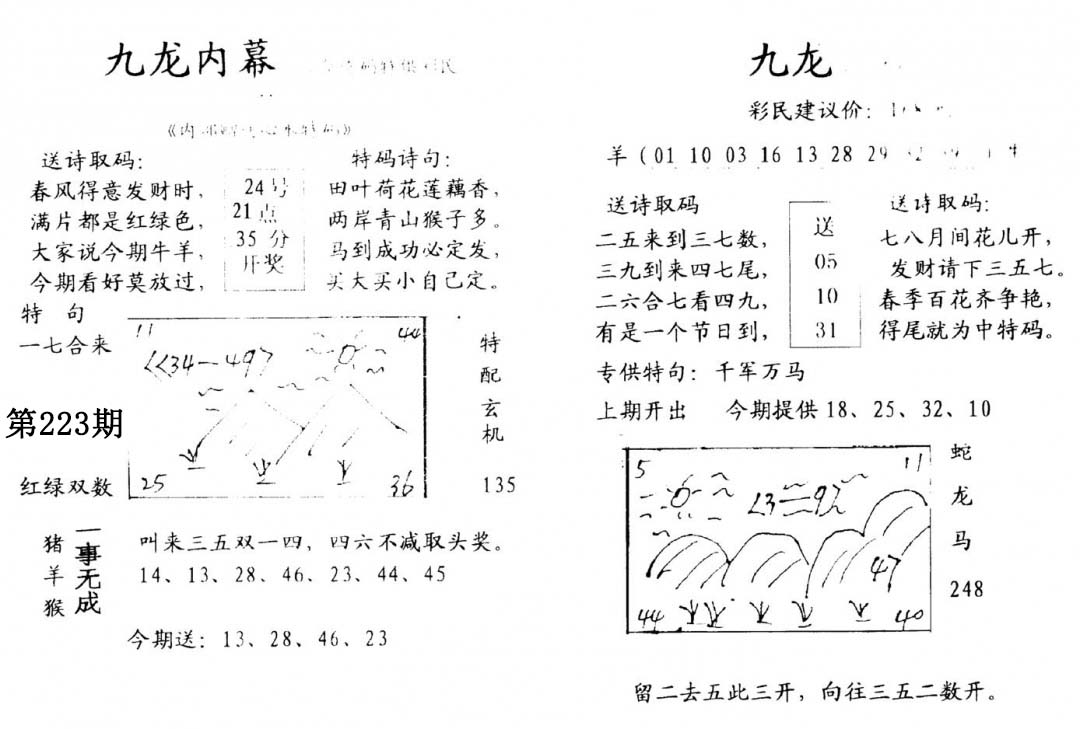 九龙内幕
送诗取码：
春风得意发财时，
满片都是红绿色，
大家说今期牛羊，
今期看好莫放过，
24号
21点
35分
开奖
特码诗句：
田叶荷花莲藕香，
两岸青山猴子多。
马到成功必定发，
买大买小自己定。
特 句
一七合来
第223期
红绿双数
11
44
34—49
25
36
特
配
玄
机
135
猪
羊
猴
一事无成
叫来三五双一四，四六不减取头奖。
14、13、28、46、23、44、45
今期送：13、28、46、23
九龙
彩民建议价：
羊（01 10 03 16 13 28 29
送诗取码
二五来到三七数，
三九到来四七尾，
二六合七看四九，
有是一个节日到，
送
05
10
31
送诗取码：
七八月间花儿开，
发财请下三五七。
春季百花齐争艳，
得尾就为中特码。
专供特句：千军万马
上期开出 今期提供18、25、32、10
5
11
47
44
40
蛇
龙
马
248
留二去五此三开，向往三五二数开。